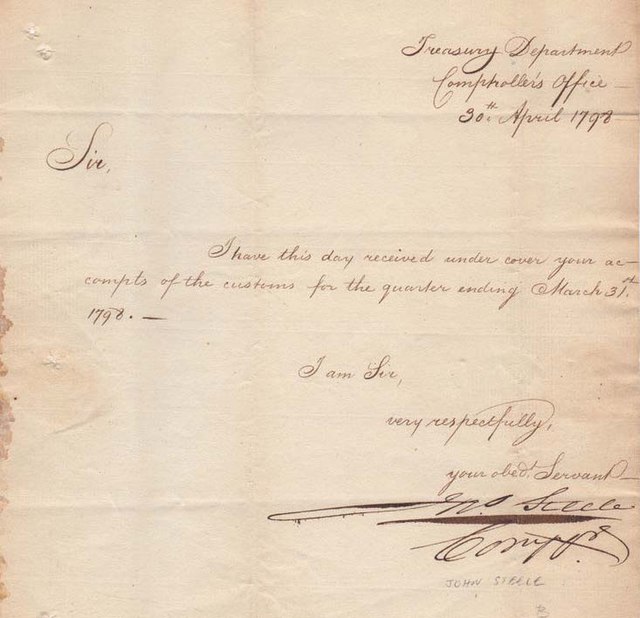 Treasury Department
Comptroller's Office
30th April 1798
Sir,
I have this day received under cover your ac-
compts of the customs for the quarter ending March 31st
1798. —
I am Sir,
very respectfully,
your obedt Servant
Jno Steele
Compr
JOHN STEELE